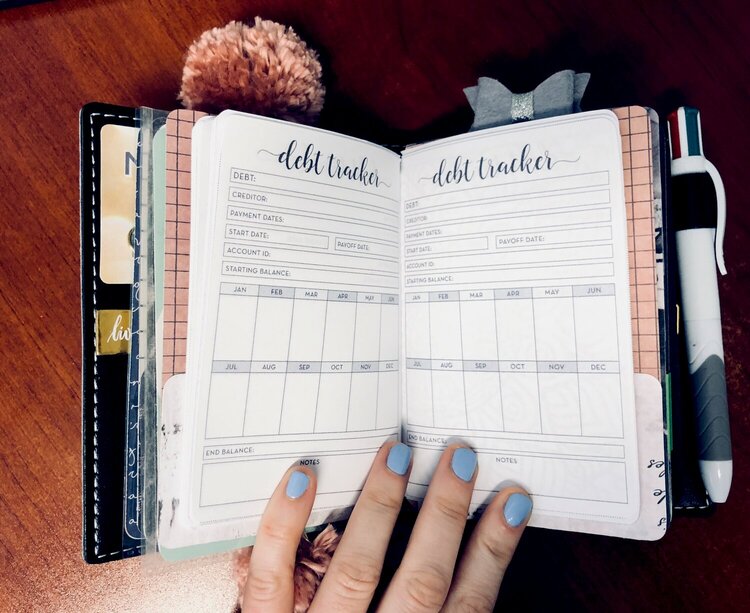 debt tracker
DEBT:
CREDITOR:
PAYMENT DATES:
START DATE: PAYOFF DATE:
ACCOUNT ID:
STARTING BALANCE:
JAN FEB MAR APR MAY JUN
JUL AUG SEP OCT NOV DEC
END BALANCE:
NOTES
debt tracker
DEBT:
CREDITOR:
PAYMENT DATES:
START DATE: PAYOFF DATE:
ACCOUNT ID:
STARTING BALANCE:
JAN FEB MAR APR MAY JUN
JUL AUG SEP OCT NOV DEC
END BALANCE:
NOTES